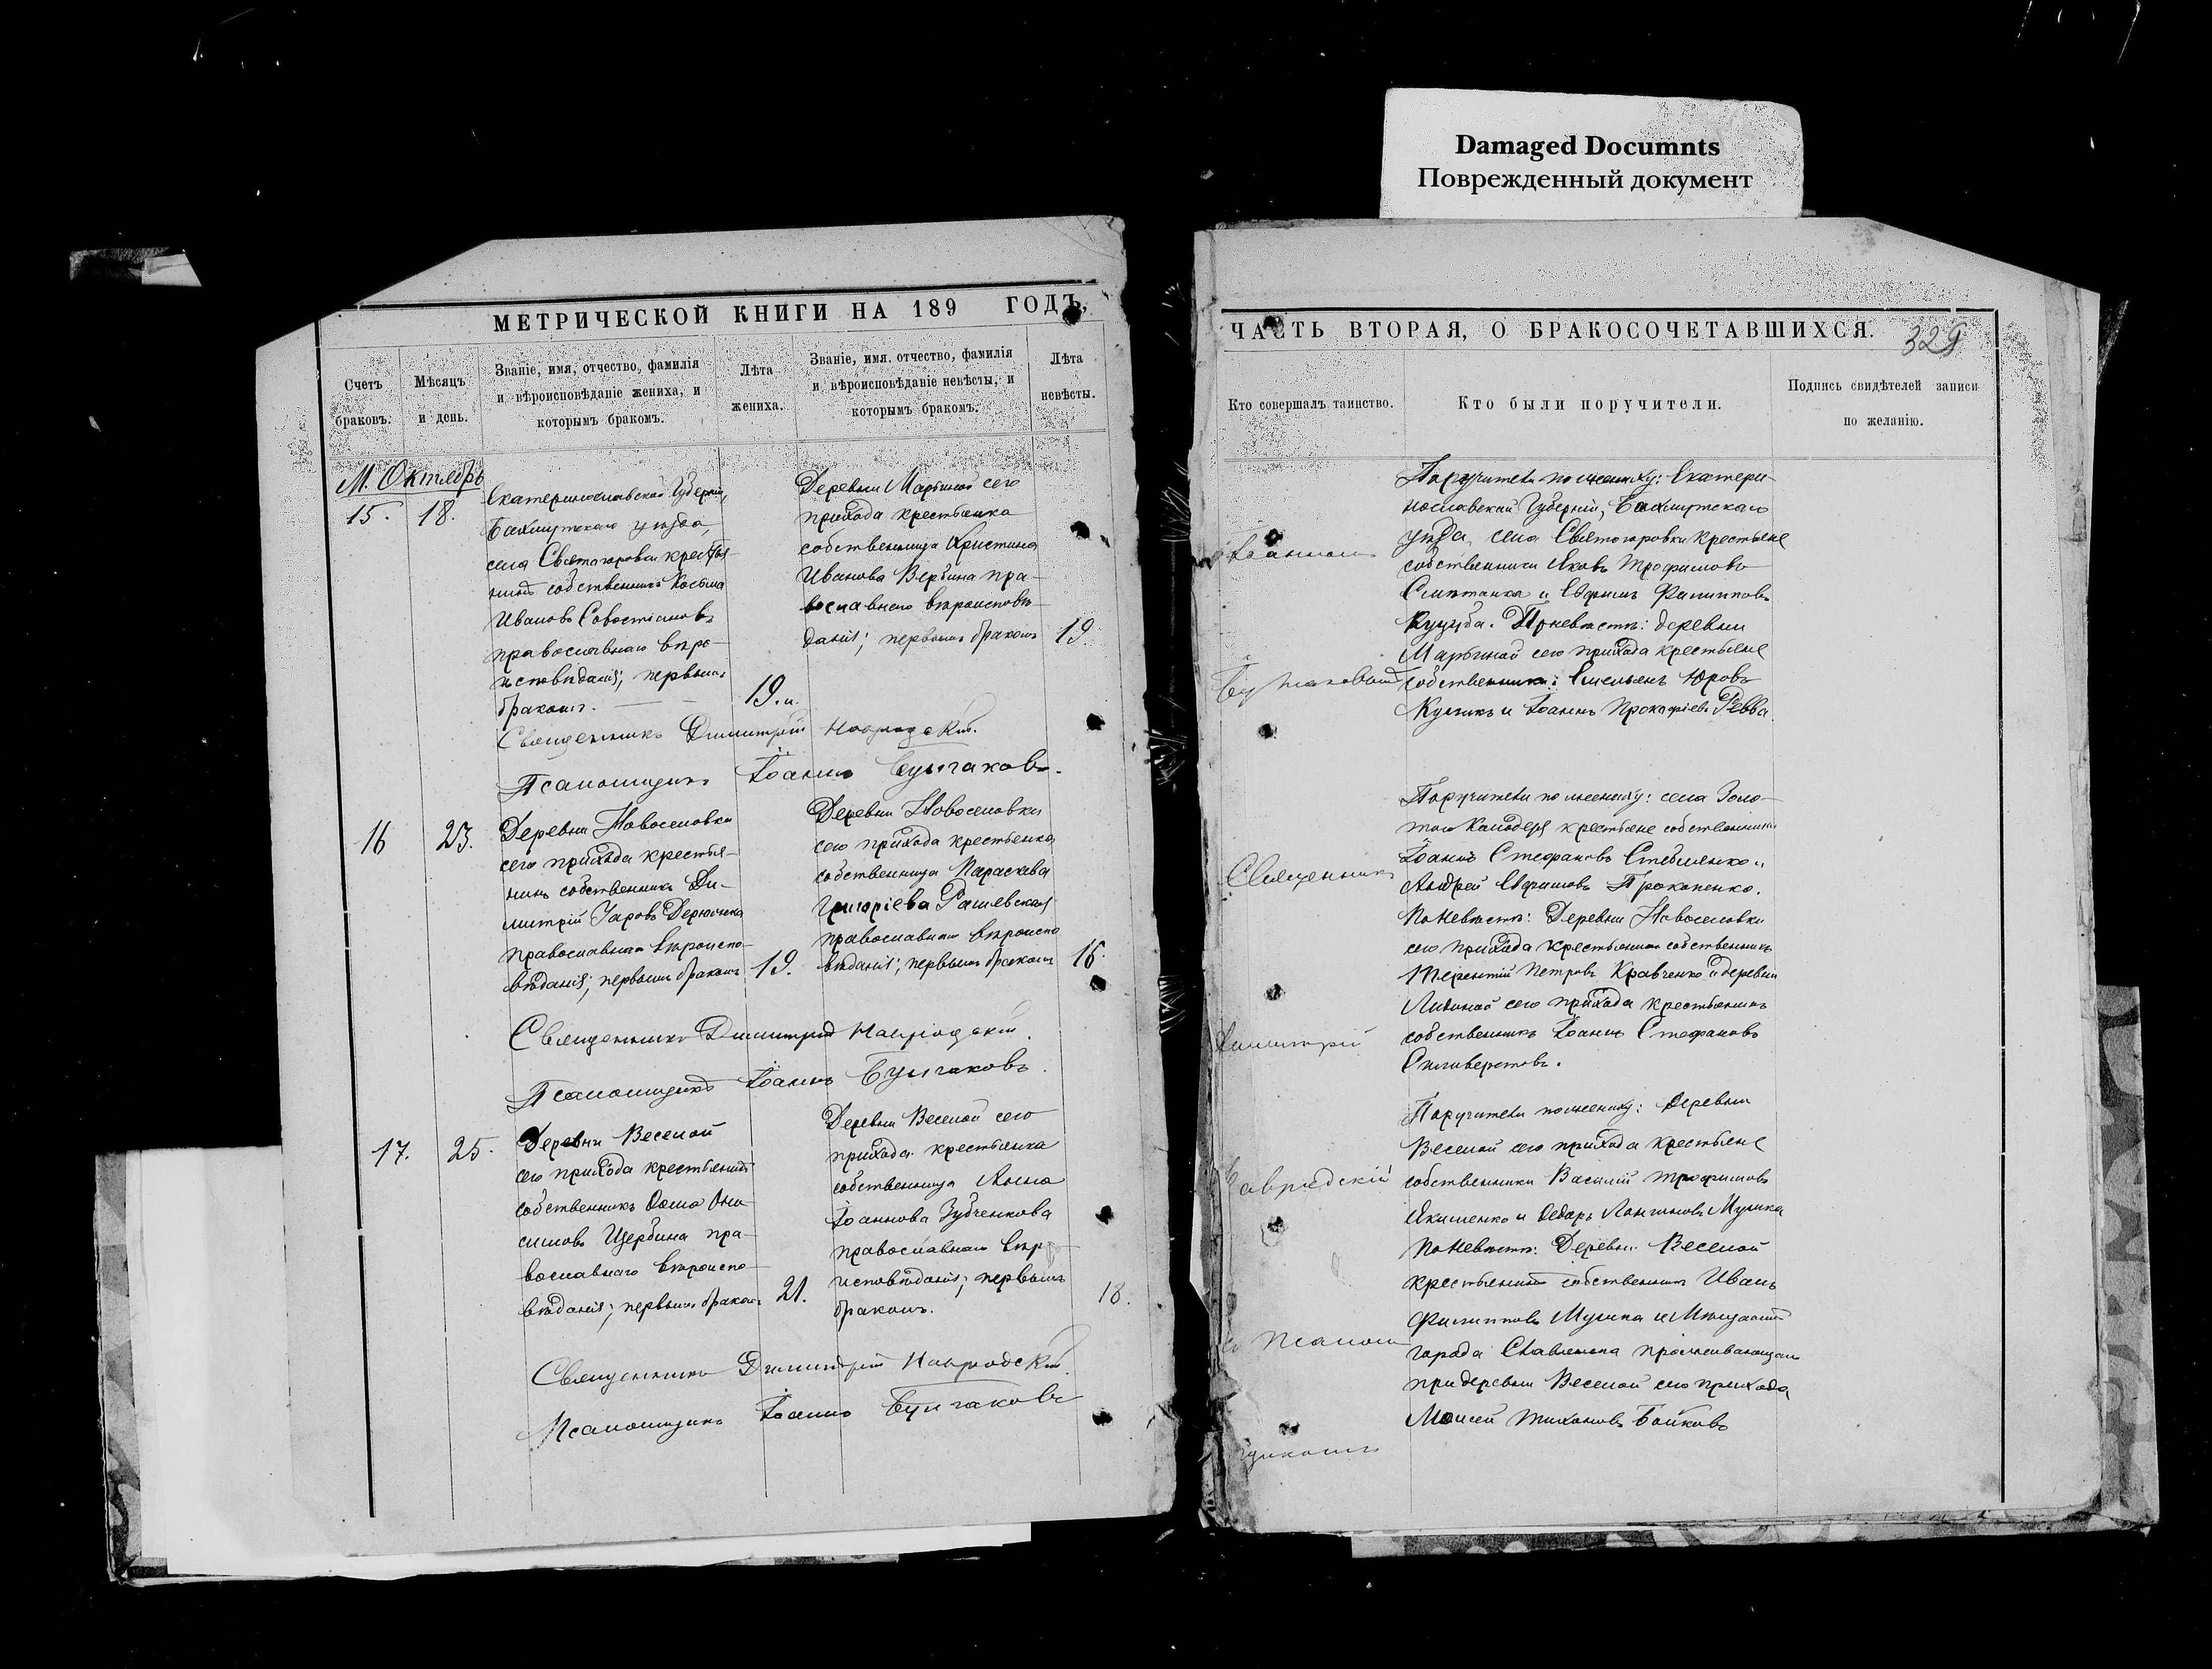 Damaged Documnts
Поврежденный документ
МЕТРИЧЕСКОЙ КНИГИ НА 189 ГОДЪ,
Счетъ браковъ.
Мѣсяцъ и день.
Званіе, имя, отчество, фамилія
и вѣроисповѣданіе жениха, и
которымъ бракомъ.
Лѣта
жениха.
Званіе, имя, отчество, фамилія
и вѣроисповѣданіе невѣсты, и
которымъ бракомъ.
Лѣта
невѣсты.
М. Октябрь
15. 18.
Екатеринославской Губерніи,
Бахмутскаго уѣзда,
села Святогоровки крестья-
нинъ собственникъ Косьма
Ивановъ Савостіановъ
православнаго вѣро-
исповѣданія; первымъ
бракомъ.
19.
Деревни Марьиной сего
прихода крестьянка
собственница Христина
Иванова Вербина пра-
вославнаго вѣроисповѣ-
данія; первымъ бракомъ
19
Священникъ Димитрій Навродскій.
Псаломщикъ Іоаннъ Булгаковъ.
16 23.
Деревни Новоселовки
сего прихода крестья-
нинъ собственникъ Ди-
митрій
православнаго вѣроиспо-
вѣданія; первымъ бракомъ
19.
Деревни Новоселовки
сего прихода крестьянка
собственница Параскева
Григоріева Рашевская
православнаго вѣроиспо
вѣданія; первымъ бракомъ
16.
Священникъ Димитрій Навродскій.
Псаломщикъ Іоаннъ Булгаковъ.
17. 25.
Деревни Веселой
сего прихода крестьянинъ
собственникъ Ѳома Они-
симовъ Щербина пра-
вославнаго вѣроиспо-
вѣданія; первымъ бракомъ
21.
Деревни Веселой сего
прихода крестьянка
собственница Анна
Іоаннова Зубченкова
православнаго вѣро-
исповѣданія; первымъ
бракомъ.
18.
Священникъ Димитрій Навродскій.
Псаломщикъ Іоаннъ Булгаковъ
ЧАСТЬ ВТОРАЯ, О БРАКОСОЧЕТАВШИХСЯ.
329
Кто совершалъ таинство.
Кто были поручители.
Подпись свидѣтелей записи
по желанію.
Іоанномъ
Булгаковымъ
Священникъ
Димитрій
Навродскій
съ Псалом
щикомъ
Поручители по жениху: Екатери-
нославской Губерніи, Бахмутскаго
уѣзда, села Святогоровки крестьяне
собственники Яковъ Трофимовъ
и Евфимъ Филипповъ
Куцуба. По невѣстѣ: деревни
Марьиной сего прихода крестьяне
собственники: Емельянъ Юровъ
Куликъ и Іоаннъ Прокофіевъ Ревва.
Поручители по жениху: села Золо-
таго Колодезя крестьяне собственники
Іоаннъ Стефановъ Стебленко и
Андрей Евфимовъ Прокопенко.
По невѣстѣ: Деревни Новоселовки
сего прихода крестьянинъ собственникъ
Терентій Петровъ Кравченко и деревни
сего прихода крестьянинъ
собственникъ Іоаннъ Стефановъ
Силиверстовъ.
Поручители по жениху: Деревни
Веселой сего прихода крестьяне
собственники Василій Трофимовъ
Якименко и Ѳедоръ Лонгиновъ Мулика
По невѣстѣ: Деревни Веселой
крестьянинъ собственникъ Иванъ
Филипповъ Мулика и Мѣщанинъ
города Славянска проживающій
при деревни Веселой сего прихода
Моисей Тихоновъ Бойковъ